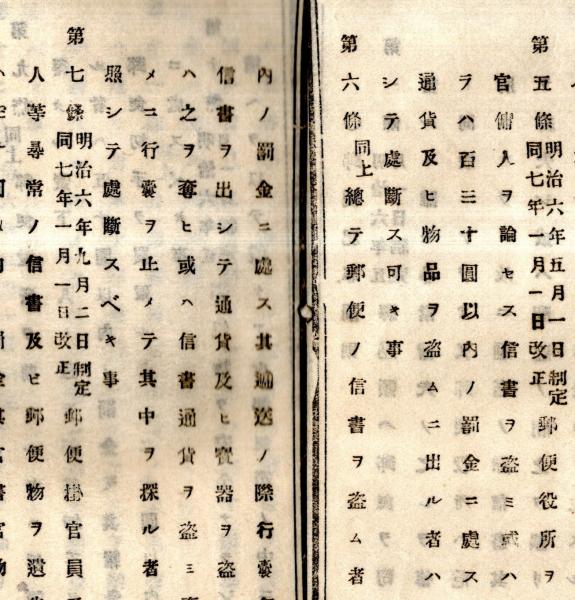 第五條 明治六年五月一日制定 同七年一月一日改正 郵便役所ヲ
官傭人ヲ論セス信書ヲ盗ミ或ハ
ヲハ百三十圓以内ノ罰金ニ處ス
通貨及ヒ物品ヲ盗ムニ出ル者ハ
シテ處斷ス可キ事
第六條 同上 總テ郵便ノ信書ヲ盗ム者
内ノ罰金ニ處ス其遞送ノ際行嚢
信書ヲ出シテ通貨及ヒ寳器ヲ盗
ハ之ヲ奪ヒ或ハ信書通貨ヲ盗ミ
メニ行嚢ヲ止メテ其中ヲ探ル者
照シテ處斷スベキ事
第七條 明治六年九月二日制定 同七年一月一日改正 郵便掛官員
人等尋常ノ信書及ヒ郵便物ヲ遺